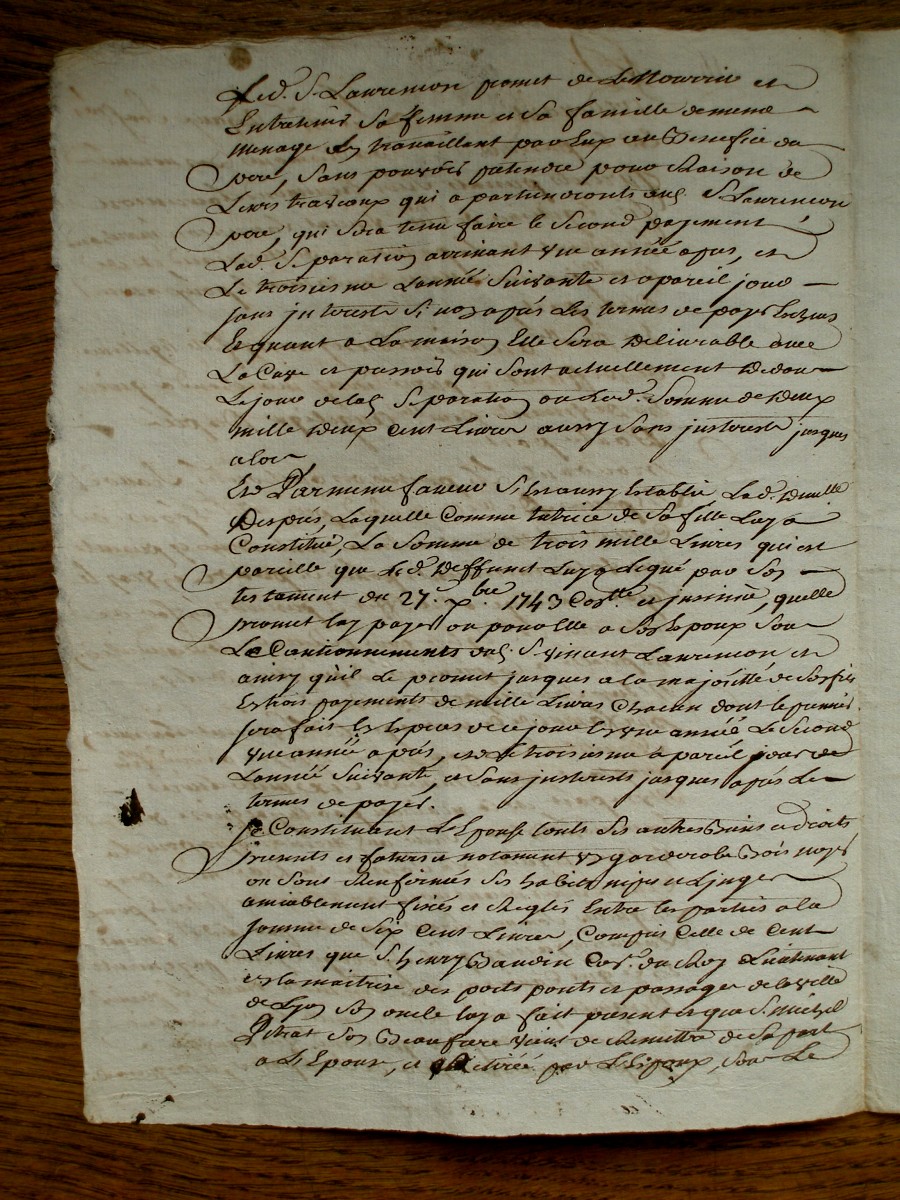 Led. S. Laurencon promet de Le Nourrir et
Entretenir Sa femme et Sa famille de meme
menage En travaillant par Eux au Benefice du
pere, Sans pouvoir pretendre pour Raison de
Leurs travaux qui apartiendronts aud. S. Laurencon
pere, qui Sera tenu faire le Second payement
Lad. Separation arrivant une année apres, et
Le troisieme Lannée Suivante et a pareil jour
Sans jnterests Si non apres Les termes de payer Echus
Et quant a La maison Elle Sera Delivrable avec
La Cave et qui Sont actuellement
Le jour de lad. Separation ou Lad. Somme de Deux
mille Deux Cent Livres aussy Sans jnterests jusques
alors
Et Par meme faveur S'Est aussy Establie Lad. Dlle
Despres, Laquelle Comme tutrice de Sa fille Luy a
Constitué, La Somme de trois mille Livres qui est
pareille que Led. Deffunct Luy a Legué par Son
testament du 27. xbre. 1743 Conlle. et jnsinué, quelle
promet luy payer ou pour Elle a Son Epoux Sous
Le Cautionnements dud. S. vincent Laurencon et
ainsy qu'il Le promet jusques a la majorité de Son fils
En trois payements de mille Livres Chacun dont le premier
Sera fait Les Espres de ce jour En une année Le Second
une année apres, et Le troisieme a pareil jour de
Lannée Suivante, et Sans jnterests jusques apres Le
termes de payer.
Se Constituant L'Epouse touts Ses autres Biens et droits
presents et futurs et notament un garderobe Bois noyer
ou Sont Renfermés Ses habits nipes et Linges
amiablement fixés et Reglés Entre les parties a la
Somme de Six Cent Livres, Compris Celle de Cent
Livres que S. henry Baudin Cer. du Roy Lieutenant
En la maitrise des ports ponts et passages de la ville
de Lyon Son oncle luy a fait present et que S. michel
Pitrat Son Beaufrere vient de Remettre de Sa part
a L'Epouse, et retirée par L'Epoux, Sous Le